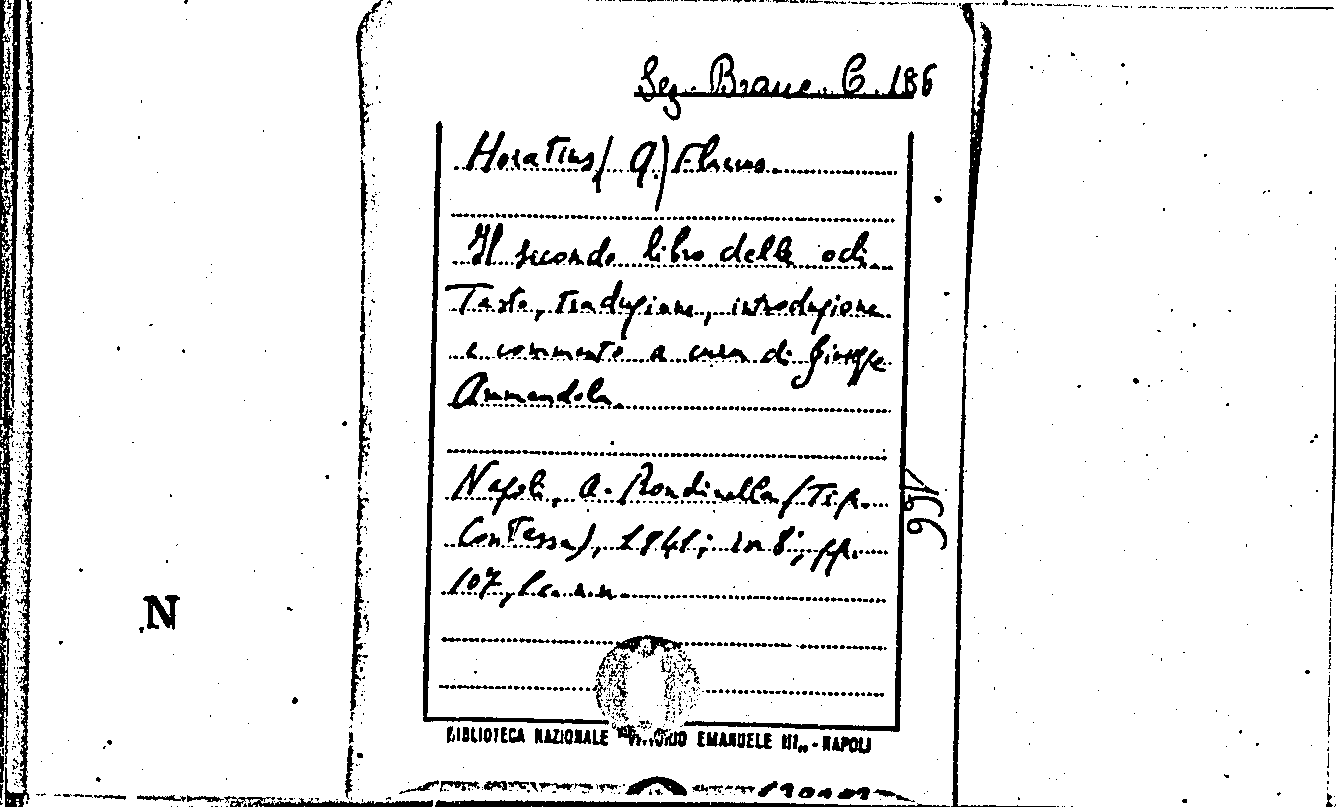 Sez. Branc. C. 186
Horatius (Q.) Flacus.
Il secondo libro delle odi.
Testo, traduzione, introduzione
e commento a cura di Giuseppe
Ammendola.
Napoli, A. Rondinella (Tip.
Contessa), 1941; in 8°, pp.
107, 1 c.n.n.
166
N
BIBLIOTECA NAZIONALE "VITTORIO EMANUELE III„ - NAPOLI